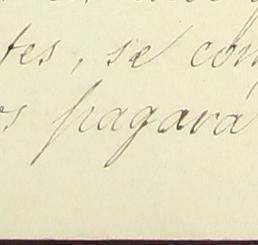 tes, se con
os pagará